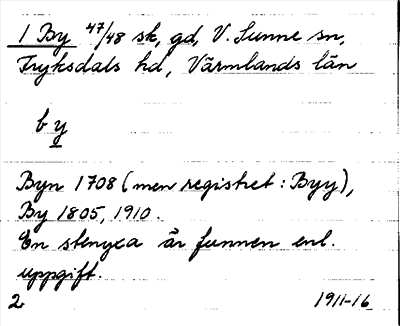 1 By 47/48 sk, gd, V. Sunne sn,
Fryksdals hd, Värmlands län
by
Byn 1708 (men registret: Byy),
By 1805, 1910.
En stenyxa är funnen enl.
uppgift.
2 1911-16